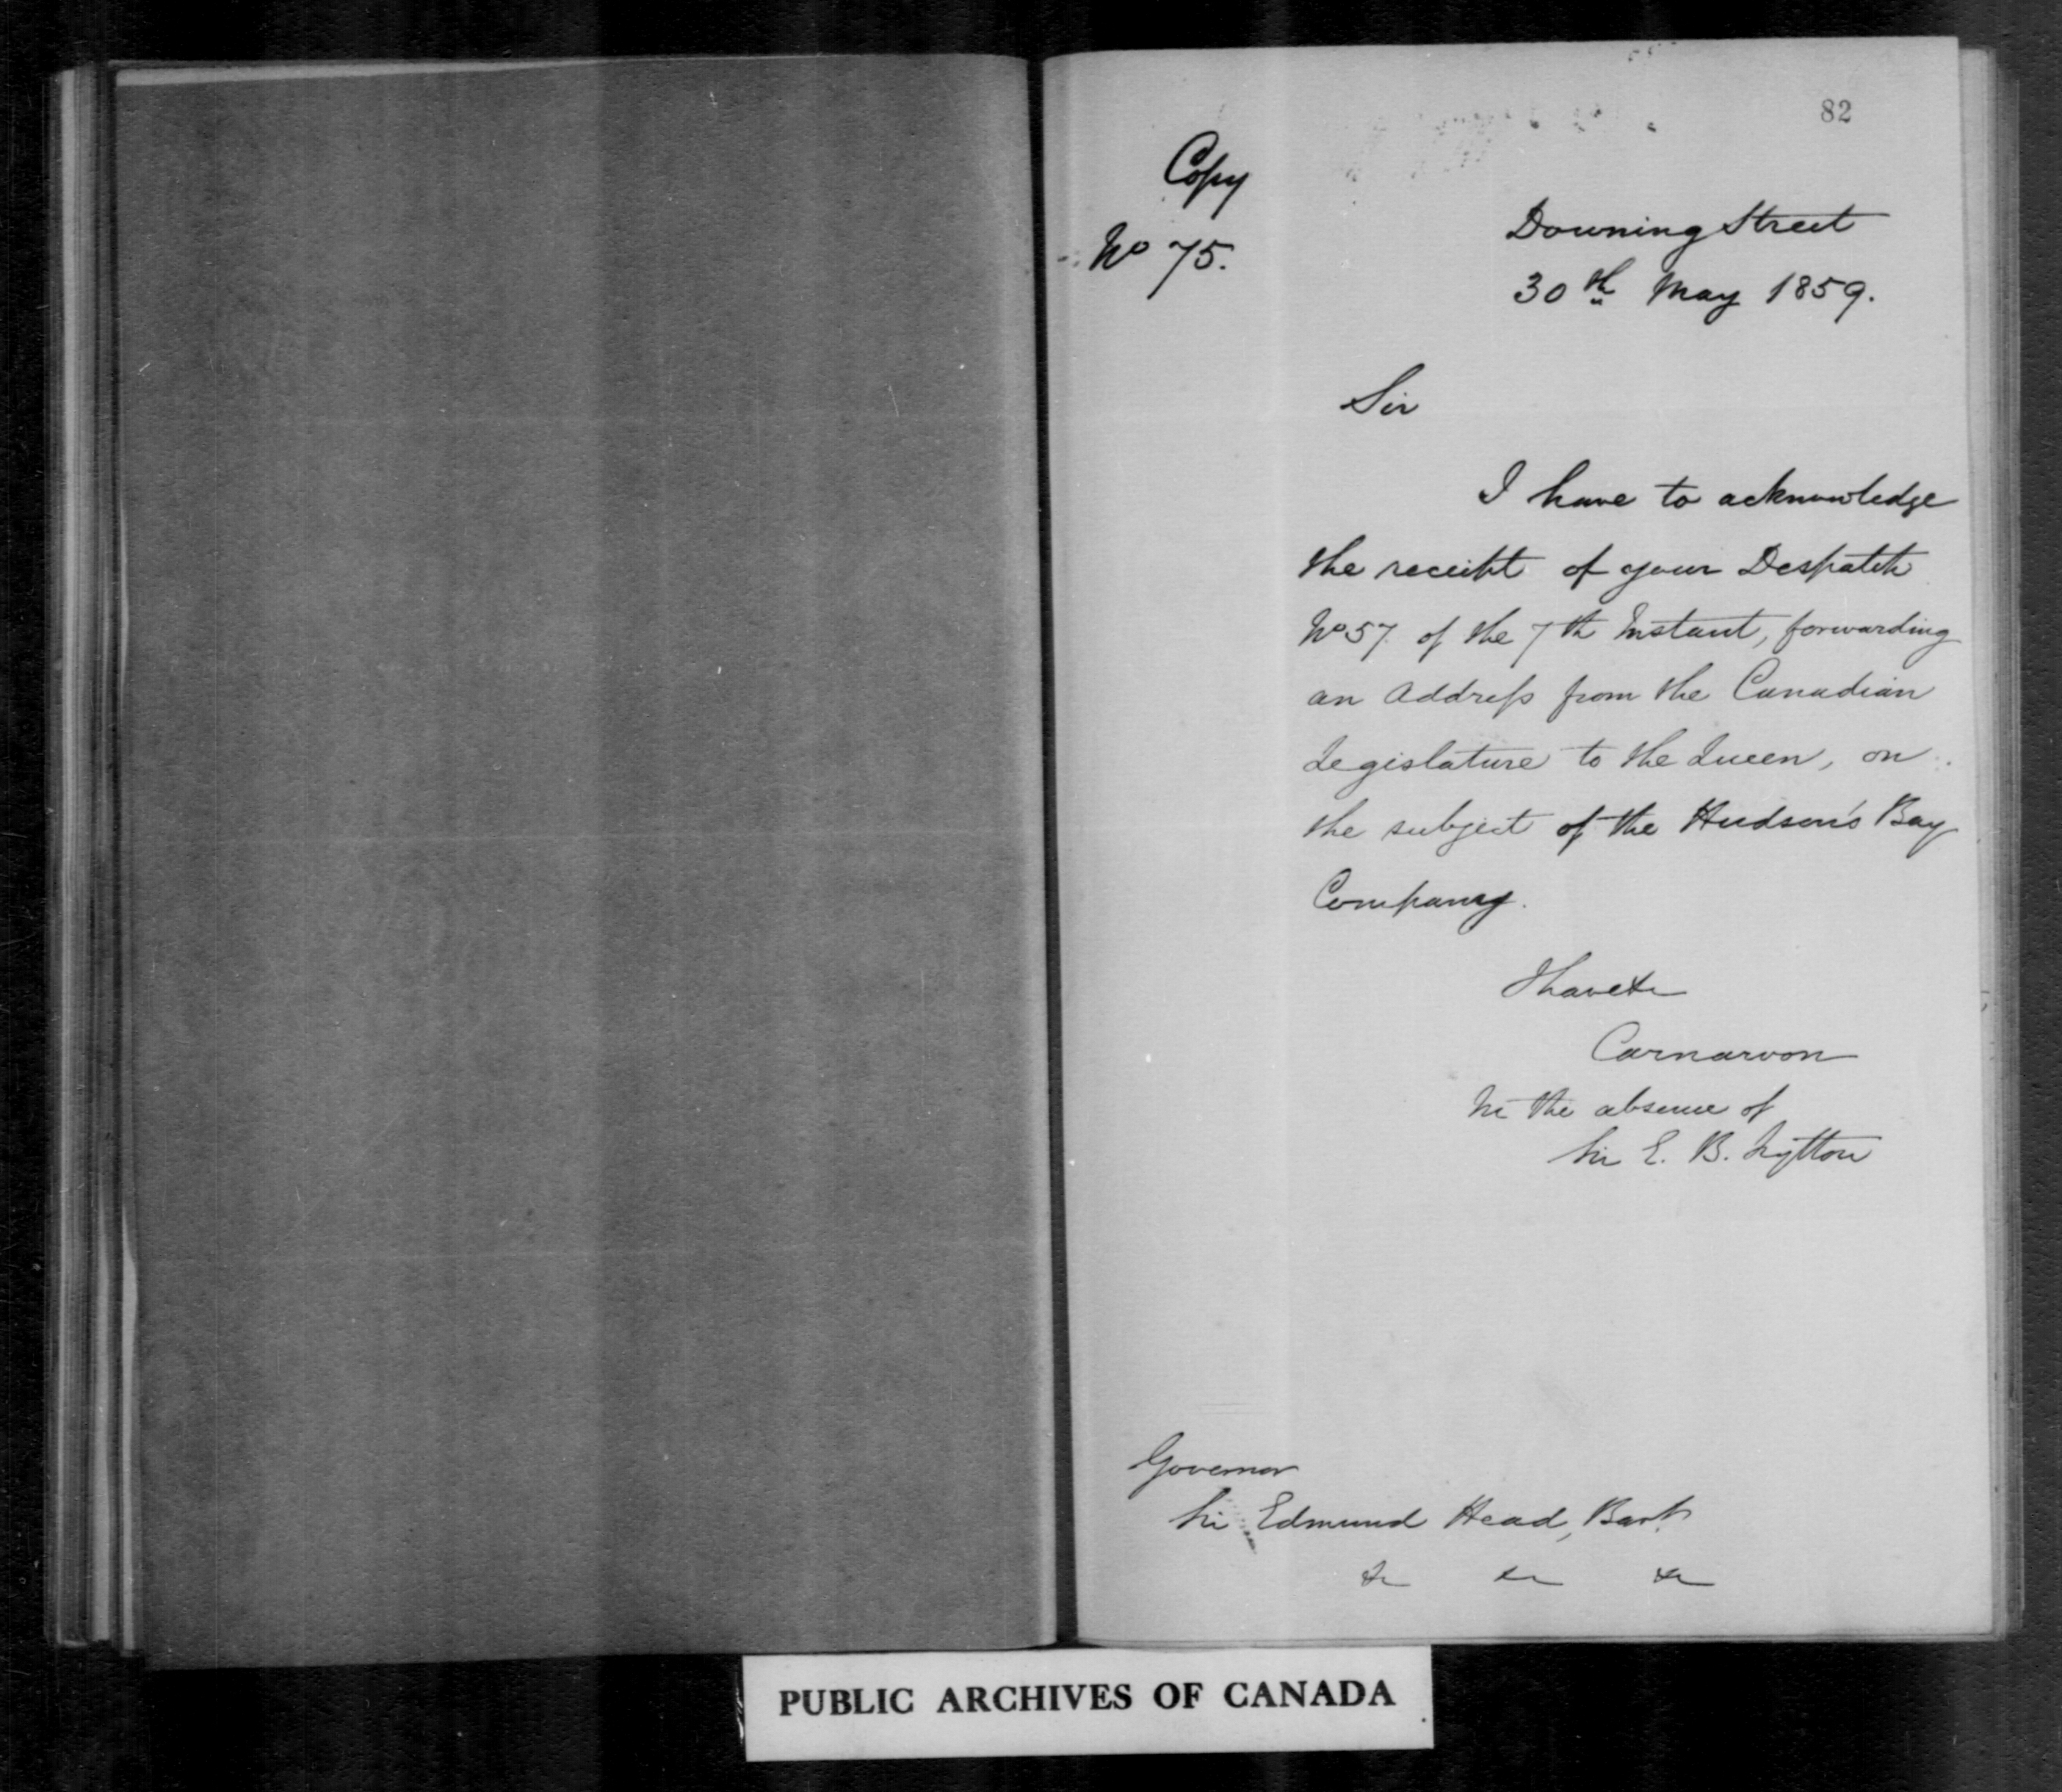 82
Copy
No 75.
Downing Street
30th May 1859.
Sir
I have to acknowledge
the receipt of your Despatch
No 57. of the 7th Instant, forwarding
an Address from the Canadian
Legislature to the Queen, on
the subject of the Hudson's Bay
Company.
I have &c
Carnarvon
In the absence of
Sir E. B. Lytton
Governor
Sir Edmund Head, Bart.
&c &c &c
PUBLIC ARCHIVES OF CANADA